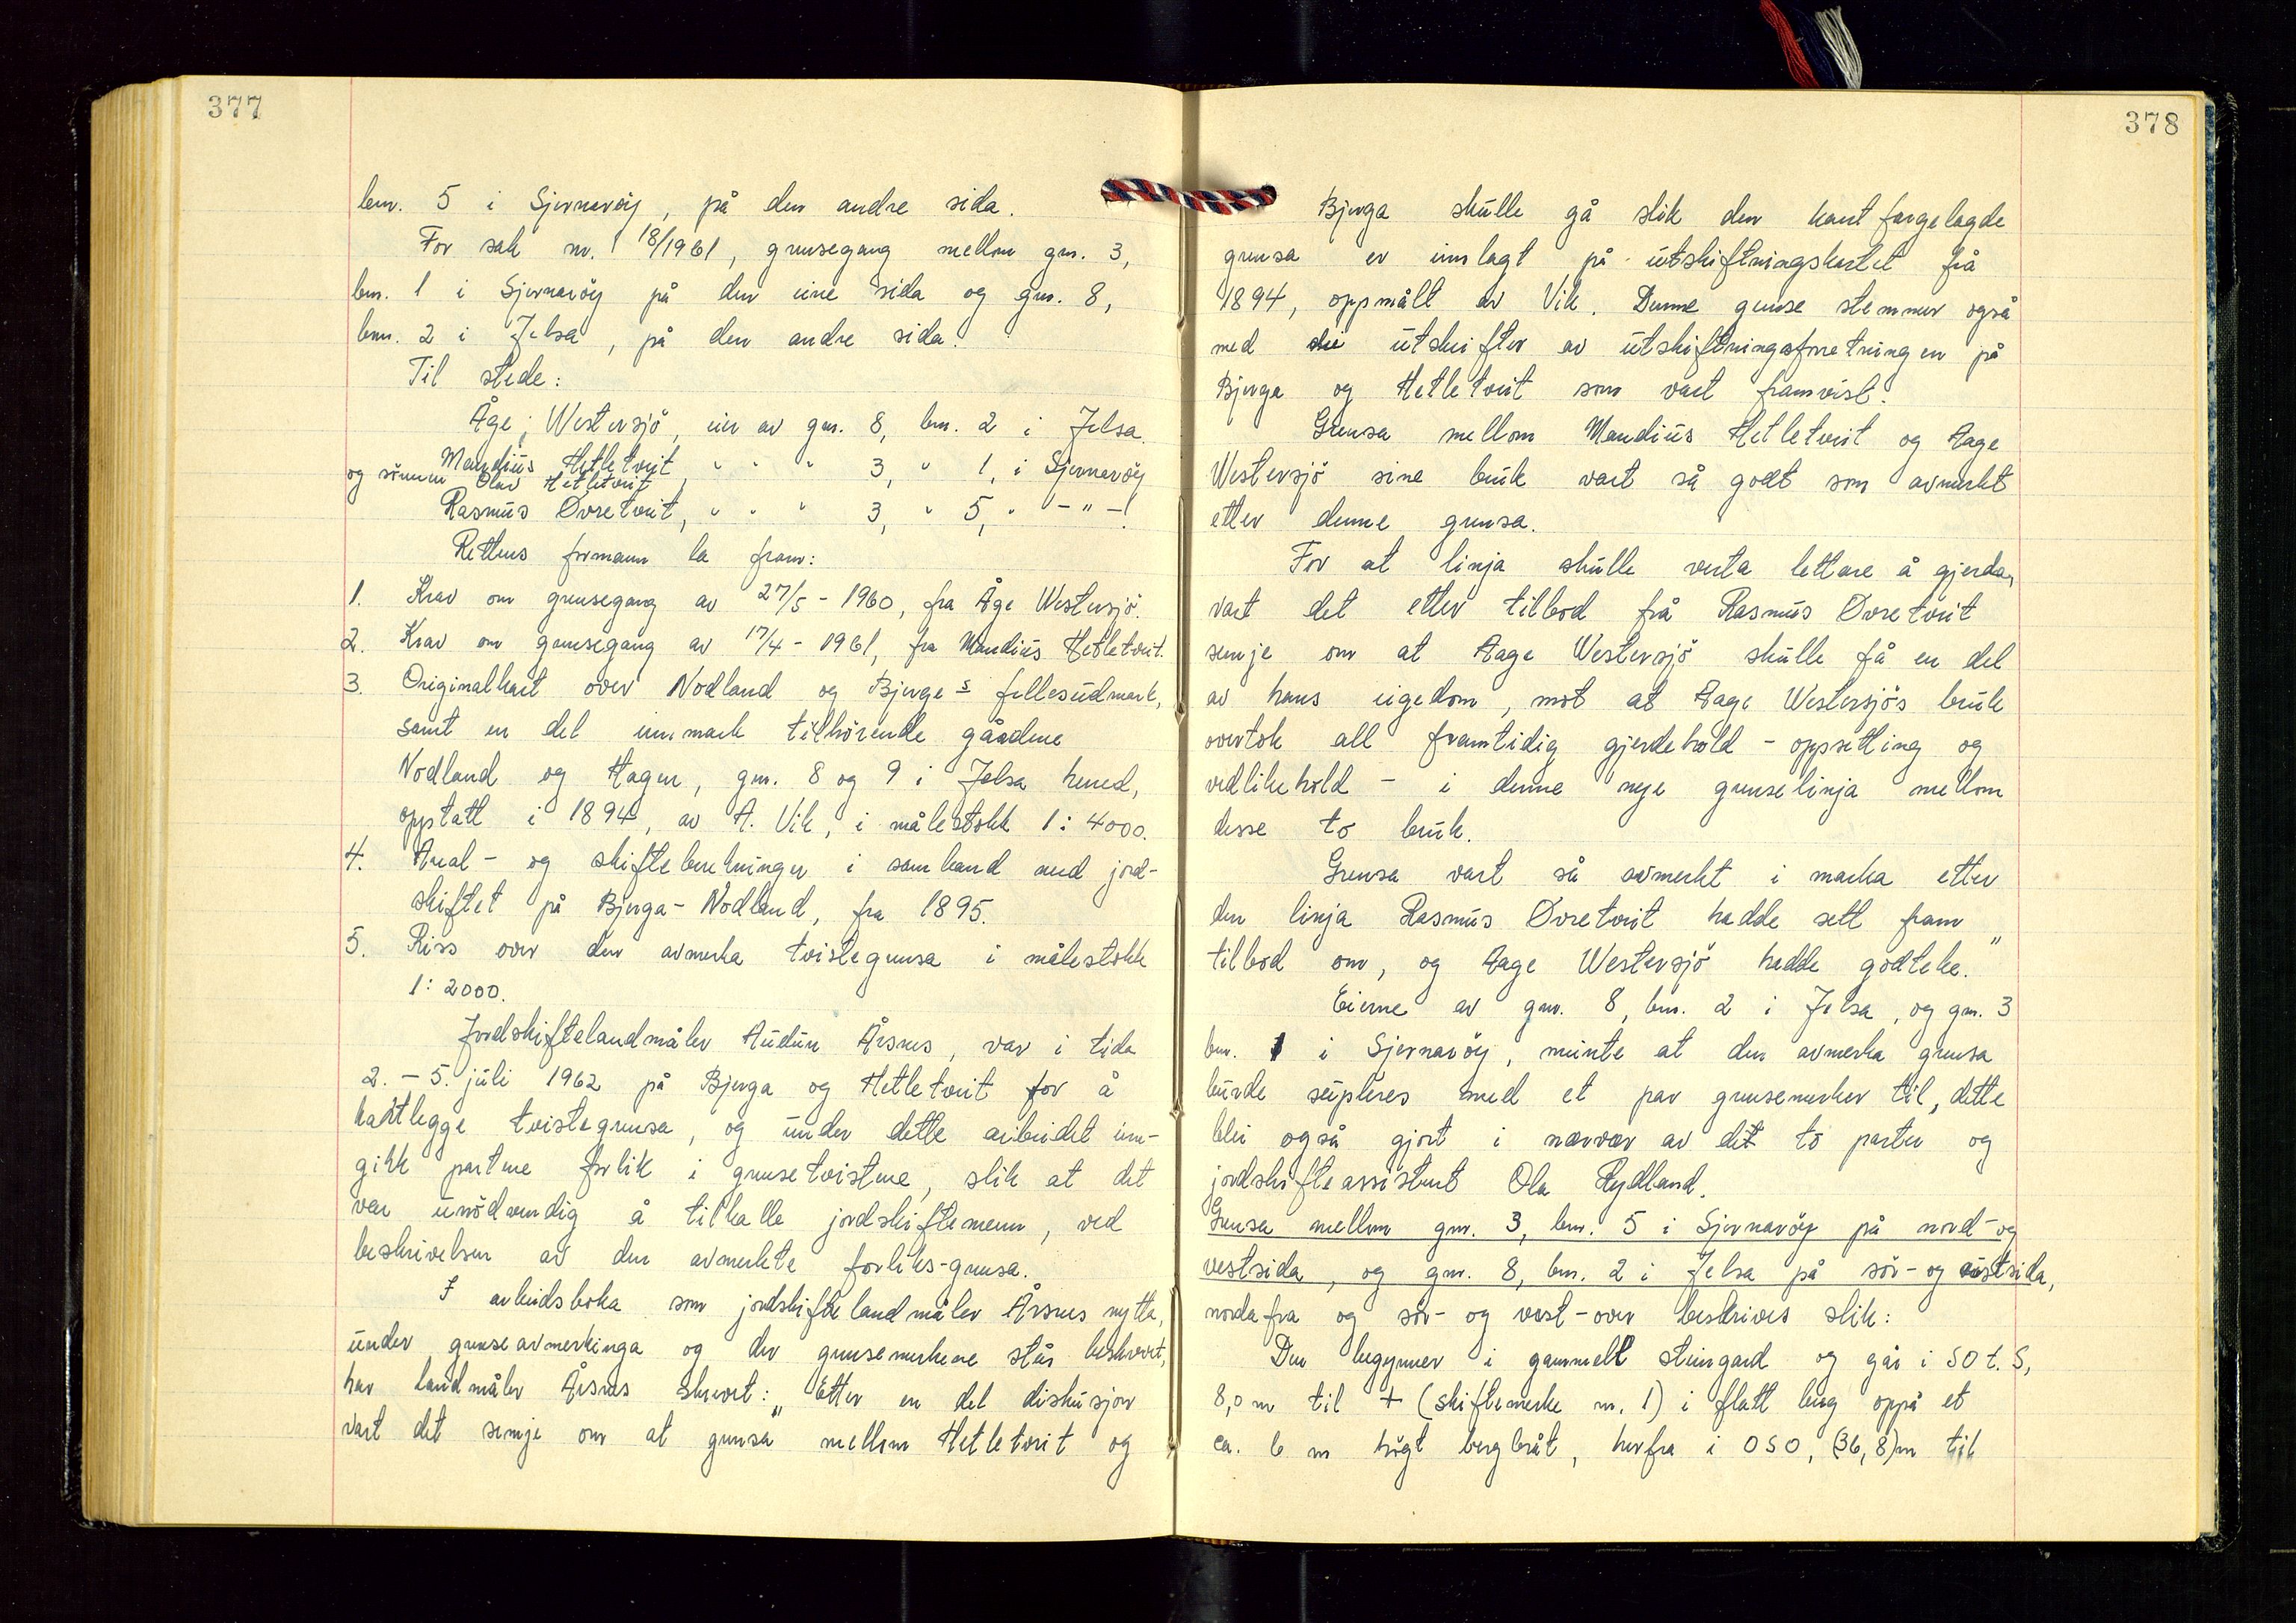 377
bnr. 5 i Sjernaröy, på den andre sida.
For sak nr. 18/1961, grensegang mellom gnr. 3,
bnr. 1 i Sjernaröy på den eine sida og gnr. 8,
bnr. 2 i Jelsa, på den andre sida.
Til stede:
Åge Westersjö, eier av gnr. 8, bnr. 2 i Jelsa.
Mandius Hetletveit, " " " 3, " 1, i Sjernaröy
og sönnen Olav Hetletveit
Rasmus Övretveit, " " " 3, " 5, " - " - !
Rettens formann la fram:
1. Krav om grensegang av 27/5 - 1960, fra Åge Westersjö.
2. Krav om grensegang av 17/4 - 1961, fra Mandius Hetletveit.
3. Originalkart over Nodland og Bjerge s fellesudmark,
samt en del innmark tilhörende gårdene
Nodland og Hagen, gnr. 8 og 9 i Jelsa herred,
opptatt i 1894, av A. Vik, i målestokk 1: 4000.
4. Areal- og skifteberekninger i samband med jord-
skiftet på Bjerga - Nodland, fra 1895.
5. Riss over den avmerka tvistegrensa i målestokk
1: 2000.
Jordskiftelandmåler Audun Årsnes, var i tida
2. - 5. juli 1962 på Bjerga og Hetletveit for å
kartlegge tvistegrensa, og under dette arbeidet inn-
gikk partene forlik i grensetvistene, slik at det
var unödvendig å tilkalle jordskiftemenn, ved
beskrivelsen av den avmerkte forliks-grensa.
I arbeidsboka som jordskiftelandmåler Årsnes nytta,
under grenseavmerkinga og der grensemerkene står beskrevet,
har landmåler Årsnes skrevet: „Etter en del diskusjon
vart det semje om at grensa mellom Hetletveit og
378
Bjerga skulle gå slik den kant fargelagde
grensa er innlagt på utskiftningskartet frå
1894, oppmålt av Vik. Denne grense stemmer også
med utskifter av utskiftningsforretningen på
Bjerga og Hetletveit som vart framvist.
Grensa mellom Mandius Hetletveit og Aage
Westersjö sine bruk vart så godt som avmerkt
etter denne grensa.
For at linja skulle verta lettare å gjerda,
vart det etter tilbod frå Rasmus Övretveit
semje om at Aage Westersjö skulle få en del
av hans eigedom, mot at Aage Westersjös bruk
overtok all framtidig gjerdehold - oppsetting og
vedlikehold - i denne nye grenselinja mellom
desse to bruk.
Grensa vart så avmerkt i marka etter
den linja Rasmus Övretveit hadde sett fram
tilbod om, og Aage Westersjö hadde godteke."
Eierne av gnr. 8, bnr. 2 i Jelsa, og gnr. 3
bnr. 1 i Sjernaröy, meinte at den avmerka grensa
burde supleres med et par grensemerker til, dette
blei også gjort i nærvær av dei to parter og
jordskifteassistent Ola Rydland.
Grensa mellom gnr. 3, bnr. 5 i Sjernaröy på nord- og
vestsida, og gnr. 8, bnr. 2 i Jelsa på sör- og austsida,
norda fra og sör- og vest-over beskrives slik:
Den begynner i gammelt steingard og går i SO t. S,
8,0 m til + (skiftemerke nr. 1) i flatt berg oppå et
ca. 6 m högt bergbråt, herfra i OSO, (36,8)m til